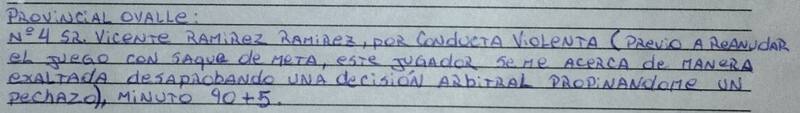 PROVINCIAL OVALLE:
Nº4 SR. VICENTE RAMIREZ RAMIREZ, POR CONDUCTA VIOLENTA (PREVIO A REANUDAR
EL JUEGO CON SAQUE DE META, ESTE JUGADOR SE ME ACERCA DE MANERA
EXALTADA DESAPROBANDO UNA DECISIÓN ARBITRAL PROPINANDOME UN
PECHAZO), MINUTO 90+5.